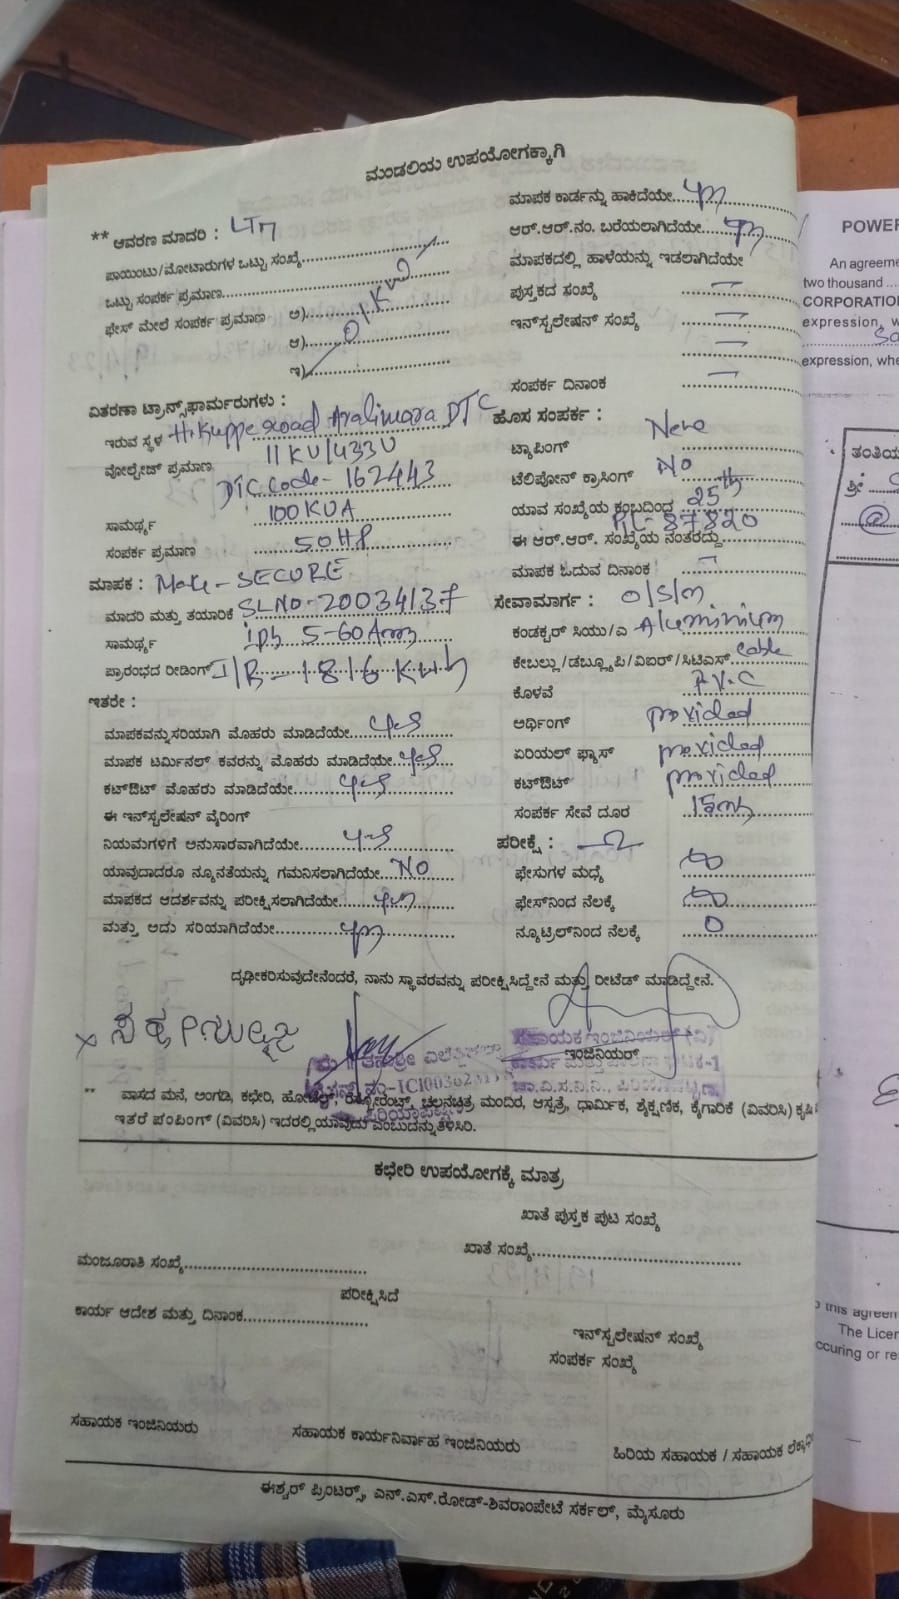 ಮಂಡಲಿಯ ಉಪಯೋಗಕ್ಕಾಗಿ
** ಆವರಣ ಮಾದರಿ :
ಪಾಯಿಂಟು/ಮೋಟಾರುಗಳ ಒಟ್ಟು ಸಂಖ್ಯೆ
ಒಟ್ಟು ಸಂಪರ್ಕ ಪ್ರಮಾಣ
ಫೇಸ್ ಮೇಲೆ ಸಂಪರ್ಕ ಪ್ರಮಾಣ ಅ)
ಆ)
ಇ)
ವಿತರಣಾ ಟ್ರಾನ್ಸ್‌ಫಾರ್ಮರುಗಳು :
ಇರುವ ಸ್ಥಳ H.Kuppe road Aralimara DTC
ವೋಲ್ಟೇಜ್ ಪ್ರಮಾಣ 11KV/433V
DTC Code- 162443
ಸಾಮರ್ಥ್ಯ 100KVA
ಸಂಪರ್ಕ ಪ್ರಮಾಣ 50HP
ಮಾಪಕ : Make- SECURE
ಮಾದರಿ ಮತ್ತು ತಯಾರಿಕೆ SLNO-20034137
ಸಾಮರ್ಥ್ಯ 1ph 5-60Am
ಪ್ರಾರಂಭದ ರೀಡಿಂಗ್ I/R-1816 Kwh
ಇತರೇ :
ಮಾಪಕವನ್ನು ಸರಿಯಾಗಿ ಮೊಹರು ಮಾಡಿದೆಯೇ yes
ಮಾಪಕ ಟರ್ಮಿನಲ್ ಕವರನ್ನು ಮೊಹರು ಮಾಡಿದೆಯೇ yes
ಕಟ್‌ಔಟ್ ಮೊಹರು ಮಾಡಿದೆಯೇ yes
ಈ ಇನ್‌ಸ್ಟಲೇಷನ್ ವೈರಿಂಗ್
ನಿಯಮಗಳಿಗೆ ಅನುಸಾರವಾಗಿದೆಯೇ yes
ಯಾವುದಾದರೂ ನ್ಯೂನತೆಯನ್ನು ಗಮನಿಸಲಾಗಿದೆಯೇ NO
ಮಾಪಕದ ಆದರ್ಶವನ್ನು ಪರೀಕ್ಷಿಸಲಾಗಿದೆಯೇ
ಮತ್ತು ಅದು ಸರಿಯಾಗಿದೆಯೇ
ಮಾಪಕ ಕಾರ್ಡನ್ನು ಹಾಕಿದೆಯೇ
ಆರ್.ಆರ್.ನಂ. ಬರೆಯಲಾಗಿದೆಯೇ
ಮಾಪಕದಲ್ಲಿ ಹಾಳೆಯನ್ನು ಇಡಲಾಗಿದೆಯೇ
ಪುಸ್ತಕದ ಸಂಖ್ಯೆ
ಇನ್‌ಸ್ಟಲೇಷನ್ ಸಂಖ್ಯೆ
ಸಂಪರ್ಕ ದಿನಾಂಕ
ಹೊಸ ಸಂಪರ್ಕ :
ಟ್ಯಾಪಿಂಗ್ New
ಟೆಲಿಫೋನ್ ಕ್ರಾಸಿಂಗ್ NO
ಯಾವ ಸಂಖ್ಯೆಯ ಕಂಬದಿಂದ 25th
ಈ ಆರ್.ಆರ್. ಸಂಖ್ಯೆಯ ನಂತರದ್ದು 87820
ಮಾಪಕ ಓದುವ ದಿನಾಂಕ
ಸೇವಾಮಾರ್ಗ : O/S/M
ಕಂಡಕ್ಟರ್ ಸಿಯು/ಎ Aluminium
ಕೇಬಲ್ಲು/ಡಬ್ಲ್ಯೂಪಿ/ವಿಐರ್/ಸಿಟಿಎಸ್ Cable
ಕೊಳವೆ P.V.C
ಅರ್ಥಿಂಗ್ provided
ಏರಿಯಲ್ ಫ್ಯೂಸ್ provided
ಕಟ್‌ಔಟ್ provided
ಸಂಪರ್ಕ ಸೇವೆ ದೂರ 15m
ಪರೀಕ್ಷೆ : Ω
ಫೇಸುಗಳ ಮಧ್ಯೆ ∞
ಫೇಸ್‌ನಿಂದ ನೆಲಕ್ಕೆ ∞
ನ್ಯೂಟ್ರಿಲ್‌ನಿಂದ ನೆಲಕ್ಕೆ 0
ದೃಢೀಕರಿಸುವುದೇನೆಂದರೆ, ನಾನು ಸ್ಥಾವರವನ್ನು ಪರೀಕ್ಷಿಸಿದ್ದೇನೆ ಮತ್ತು ರೀಟೆಡ್ ಮಾಡಿದ್ದೇನೆ.
ಸಹಾಯಕ ಇಂಜಿನಿಯರ್ (ವಿ)
ಇಂಜಿನಿಯರ್
** ವಾಸದ ಮನೆ, ಅಂಗಡಿ, ಕಛೇರಿ, ಹೋಟೆಲ್, ರೆಸ್ಟೋರೆಂಟ್, ಚಲನಚಿತ್ರ ಮಂದಿರ, ಆಸ್ಪತ್ರೆ, ಧಾರ್ಮಿಕ, ಶೈಕ್ಷಣಿಕ, ಕೈಗಾರಿಕೆ (ವಿವರಿಸಿ) ಕೃಷಿ
ಇತರೆ ಪಂಪಿಂಗ್ (ವಿವರಿಸಿ) ಇದರಲ್ಲಿ ಯಾವುದು ಎಂಬುದನ್ನು ತಿಳಿಸಿರಿ.
ಕಛೇರಿ ಉಪಯೋಗಕ್ಕೆ ಮಾತ್ರ
ಖಾತೆ ಪುಸ್ತಕ ಪುಟ ಸಂಖ್ಯೆ
ಖಾತೆ ಸಂಖ್ಯೆ
ಮಂಜೂರಾತಿ ಸಂಖ್ಯೆ
ಪರೀಕ್ಷಿಸಿದೆ
ಕಾರ್ಯ ಆದೇಶ ಮತ್ತು ದಿನಾಂಕ
ಇನ್‌ಸ್ಟಲೇಷನ್ ಸಂಖ್ಯೆ
ಸಂಪರ್ಕ ಸಂಖ್ಯೆ
ಸಹಾಯಕ ಇಂಜಿನಿಯರು
ಸಹಾಯಕ ಕಾರ್ಯನಿರ್ವಾಹ ಇಂಜಿನಿಯರು
ಹಿರಿಯ ಸಹಾಯಕ / ಸಹಾಯಕ
ಈಶ್ವರ್ ಪ್ರಿಂಟರ್ಸ್, ಎನ್.ಎಸ್.ರೋಡ್-ಶಿವರಾಂಪೇಟೆ ಸರ್ಕಲ್, ಮೈಸೂರು
POWER
An agreeme
two thousand
CORPORATIO
expression, w
expression, whe
ತಂತಿಯ
ಶ್ರೀ
@
this agreen
The Licen
ccuring or re